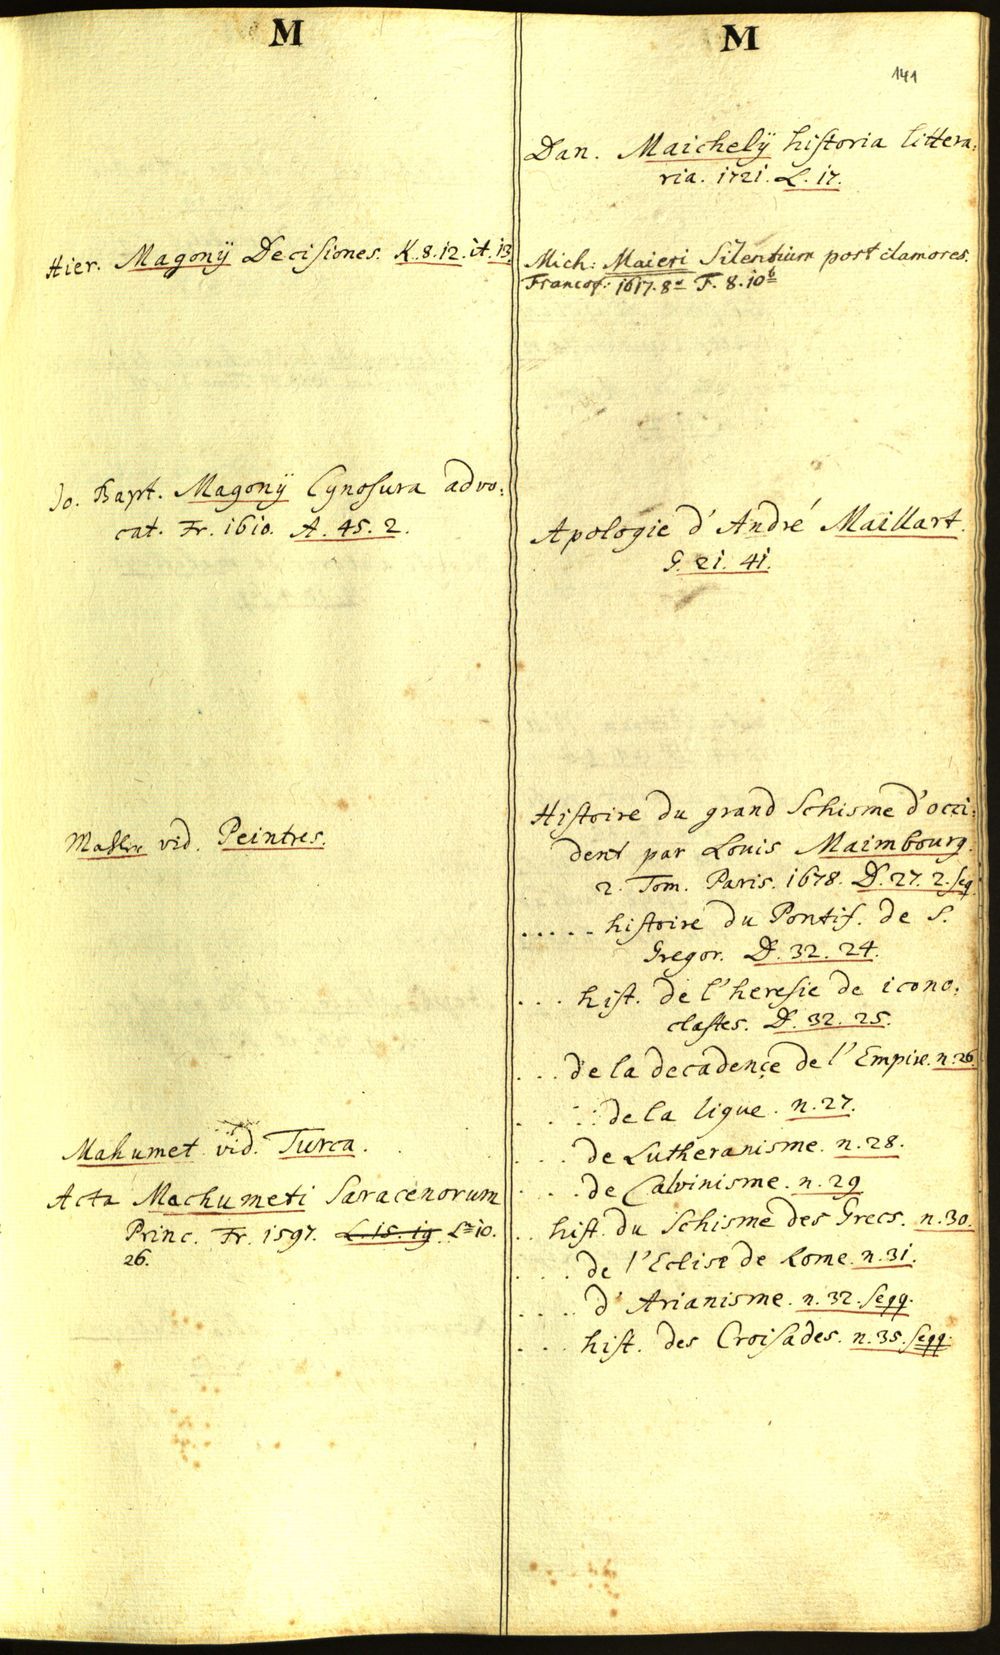 M
Hier. Magonÿ Decisiones. K. 8. 12. it. 13
Jo. Bapt. Magonÿ Cynosura advo:
cat. Fr. 1610. A. 45. 2.
Mahler vid. Peintres.
Mahumet vid. Turca.
Acta Machumeti Saracenorum
Princ. Fr. 1597. L. 15. 19. L. 10.
26.
M
141
Dan. Maichelÿ historia littera:
ria. 1721. L. 17.
Mich: Maieri Silentium post clamores.
Francof: 1617. 8° F. 8. 10b
Apologie d'André Maillart.
G. 21. 41.
Histoire du grand Schisme d'occi:
dent par Louis Maimbourg.
2. Tom. Paris. 1678. D. 27. 2. seq
..... histoire du Pontif. de S.
Gregor. D. 32. 24.
... hist. de l'heresie de icono:
clastes. D. 32. 25.
... de la decadence de l'Empire. n. 26
.... de la ligue. n. 27.
... de Lutheranisme. n. 28.
... de Calvinisme. n. 29
.. hist. du Schisme des Grecs. n. 30.
... de l'Eclise de Rome. n. 31.
.... d'Arianisme. n. 32. seqq.
... hist. des Croisades. n. 35. seqq.